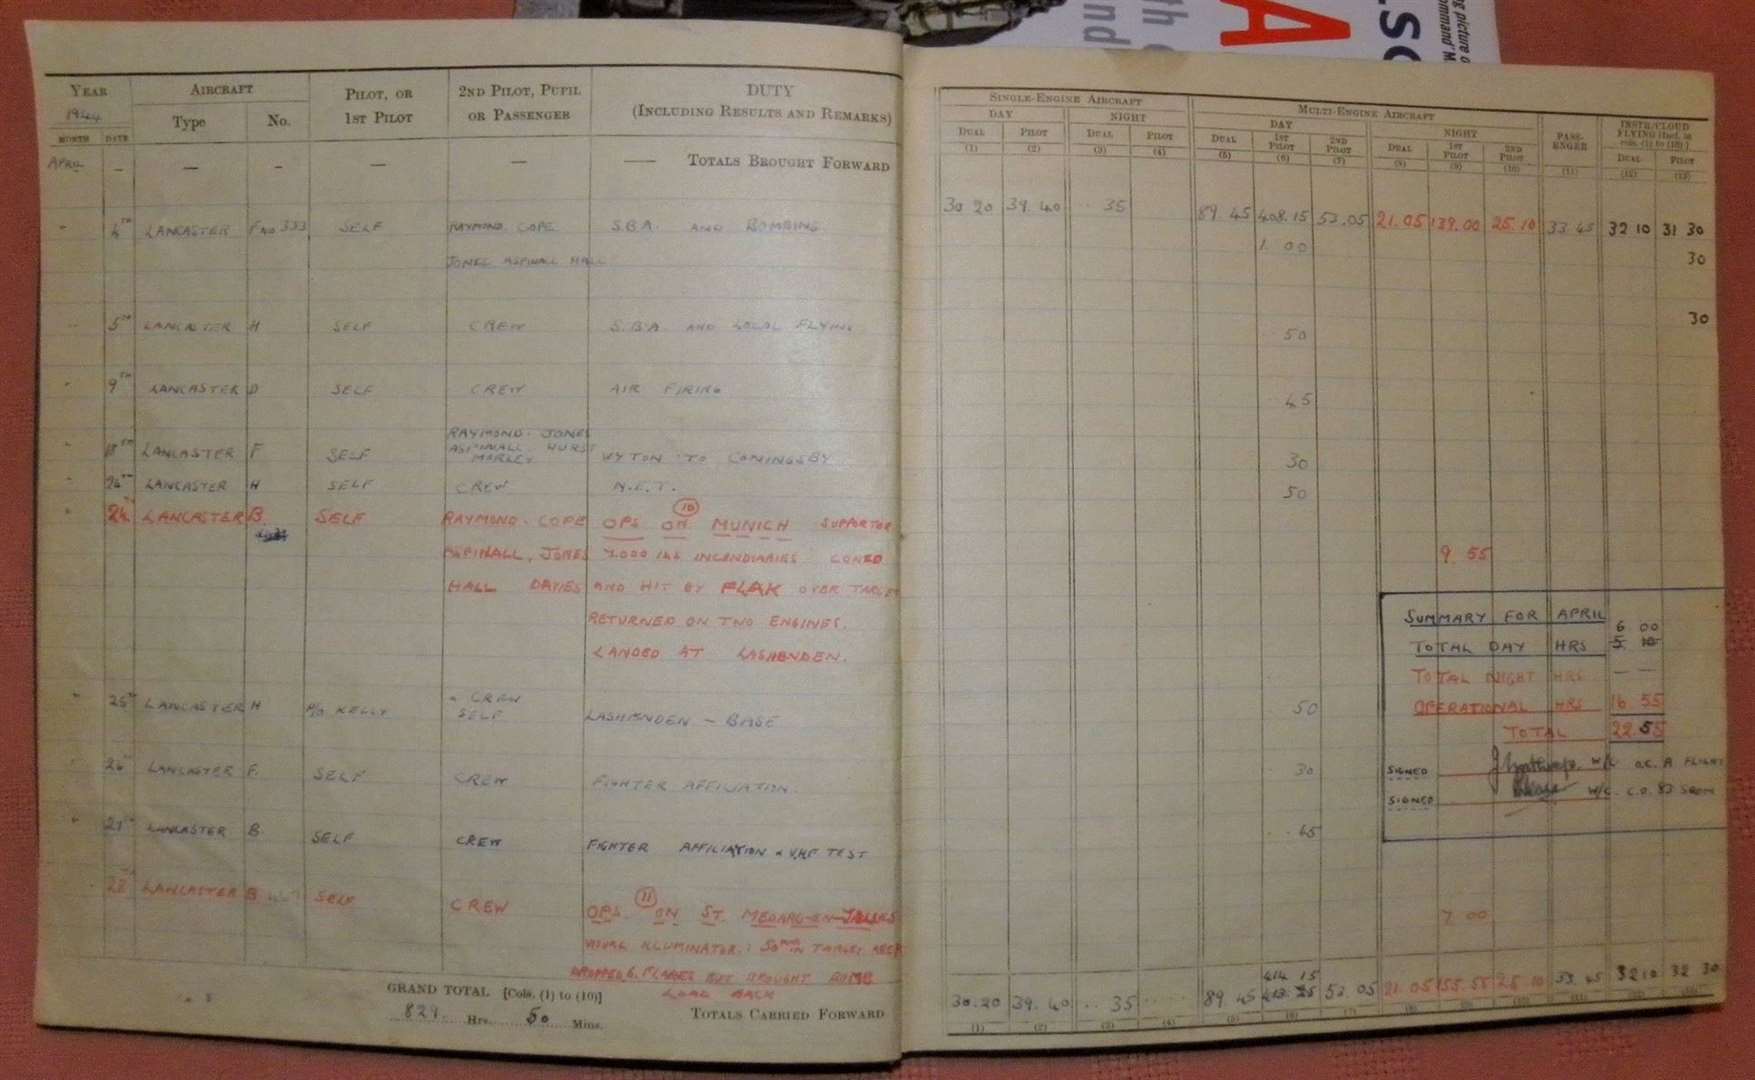 YEAR
1944
MONTH DATE
AIRCRAFT
Type No.
PILOT, OR
1ST PILOT
2ND PILOT, PUPIL
OR PASSENGER
DUTY
(INCLUDING RESULTS AND REMARKS)
APRIL — — — — — —— TOTALS BROUGHT FORWARD
4TH LANCASTER F ND 333 SELF RAYMOND. COPE S.B.A. AND BOMBING
JONES ASPINALL HALL
5TH LANCASTER H SELF CREW S.B.A. AND LOCAL FLYING
9TH LANCASTER D SELF CREW AIR FIRING
RAYMOND. JONES
18TH LANCASTER F SELF ASPINALL HURST WYTON TO CONINGSBY
MORLEY
24TH LANCASTER H SELF CREW N.F.T.
24 LANCASTER B. SELF RAYMOND. COPE OPS ON (10) MUNICH SUPPORTER
ASPINALL, JONES 7,000 lbs INCENDIARIES CONED
HALL DAVIES AND HIT BY FLAK OVER TARGET
RETURNED ON TWO ENGINES.
LANDED AT LASHENDEN.
25TH LANCASTER H P/O KELLY CREW
SELF LASHENDEN – BASE
26 LANCASTER F. SELF CREW FIGHTER AFFILIATION.
27 LANCASTER B SELF CREW FIGHTER AFFILIATION & V.H.F TEST
28 LANCASTER B SELF CREW OPS. (11) ON ST. MEDARD-EN-JALLES
VISUAL ILLUMINATOR: IN TARGET AREA
DROPPED 6. FLARES BUT BROUGHT BOMB
LOAD BACK
GRAND TOTAL [Cols. (1) to (10)]
829. Hrs. 50 Mins.
TOTALS CARRIED FORWARD
SINGLE-ENGINE AIRCRAFT
DAY NIGHT
DUAL PILOT DUAL PILOT
(1) (2) (3) (4)
MULTI-ENGINE AIRCRAFT
DAY NIGHT
DUAL 1ST PILOT 2ND PILOT DUAL 1ST PILOT 2ND PILOT
(5) (6) (7) (8) (9) (10)
PASSENGER
(11)
INSTR/CLOUD
FLYING [Incl. in
cols. (1) to (10)]
DUAL PILOT
(12) (13)
30 20 39.40 .. 35 89.45 408.15 53.05 21.05 139.00 25.10 33 45 32 10 31 30
1. 00 30
50 30
45
30
50
9 55
SUMMARY FOR APRIL
6 00
TOTAL DAY HRS 5
TOTAL NIGHT HRS — —
OPERATIONAL HRS 16 55
TOTAL 22.55
SIGNED W/C O.C. A FLIGHT
SIGNED W/C. C.O. 83 SQDN
50
30
45
7 00
414 15
30.20 39.40 .. 35 89.45 413.25 53.05 21.05 155.55 25 10 33 45 32 10 32 30
(1) (2) (3) (4) (5) (6) (7) (8)
A
ng picture o
ommand' M